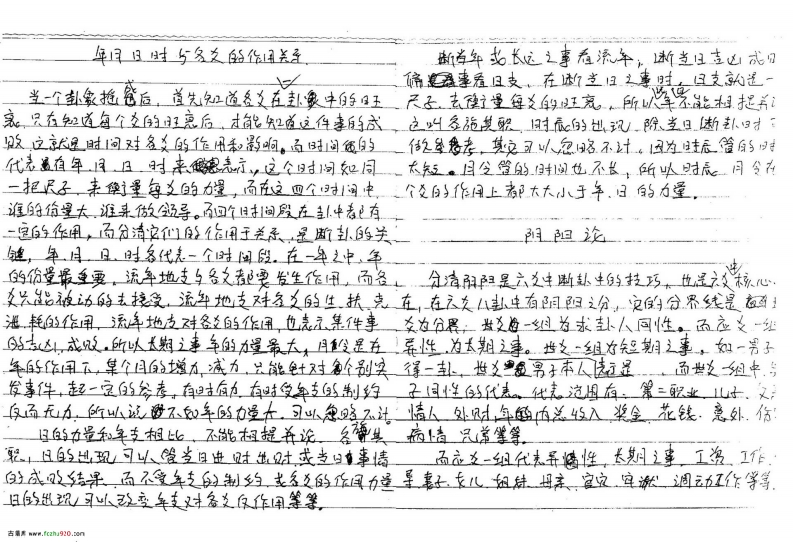 年月日时与各爻的作用关系
当一个卦象摇成后，首先知道各爻在卦象中的旺
衰，只在知道每个爻的旺衰后，才能知道这件事的成
败，这就是时间对各爻的作用和影响。而时间的
代表有年月日时来表示，这个时间如同
一把尺子，来衡量每爻的力量，而在这四个时间中
谁的份量大，谁来做领导。而四个时间段在卦中都有
一定的作用，而分清它们的作用于关系，是断卦的关
键，年、月、日、时各代表一个时间段。在一年之中、年
的份量最重要。流年地支与各爻都要发生作用，而各
爻只能被动的去接受，流年地支对各爻的生、扶、克
泄、耗的作用，流年地支对各爻的作用，也表示某件事
的吉凶，成败。所以太期之事年的力量最大，月令是在
年的作用下，某个月的增力，减力，只能针对每个别突
发事件，起一定的参考。有时有力，有时受年支的制约
反而无力，所以说不如年的力量大，可以忽略不计。
日的力量和年支相比，不能相提并论，各有其
职，日的出现可以管当日进时出时或当日事情
的成败结果，而不受年支的制约，去各爻的作用力量
日的出现可以改变年支对各爻反作用等等。
断当年或长远之事看流年，断当日吉凶成
事看日支，在断当日之事时，日支就是一
尺子，去衡量每爻的旺衰，所以和年不能相提并
这叫各施其职，时辰的出现，除当日断卦时
做参考，其它可以忽略不计。因为时辰管的时
太短。月令管的时间也不长，所以时辰、月令在
个爻的作用上都大大小于年、日的力量。
阴阳论
分清阴阳是六爻中断卦中的技巧，也是六爻核心
在，在六爻八卦中有阴阳之分，它的分界线是
爻为分界，世爻为一组为求卦人同性。而应爻一组
异性，为太期之事。世爻一组为短期之事。如一男子
得一卦，世爻男子本人，而世爻一组中
子同性的代表。代表范围有：第二职业、儿子、
情人、外财、年的内总收入、奖金、花钱、意外、伤
病情、兄弟等等。
而应爻一组代表异性，太期之事，工资，工作，
是妻子、女儿、姐妹、母亲、官灾、牢狱、调动工作等等
古籍库 www.fczhu920.com